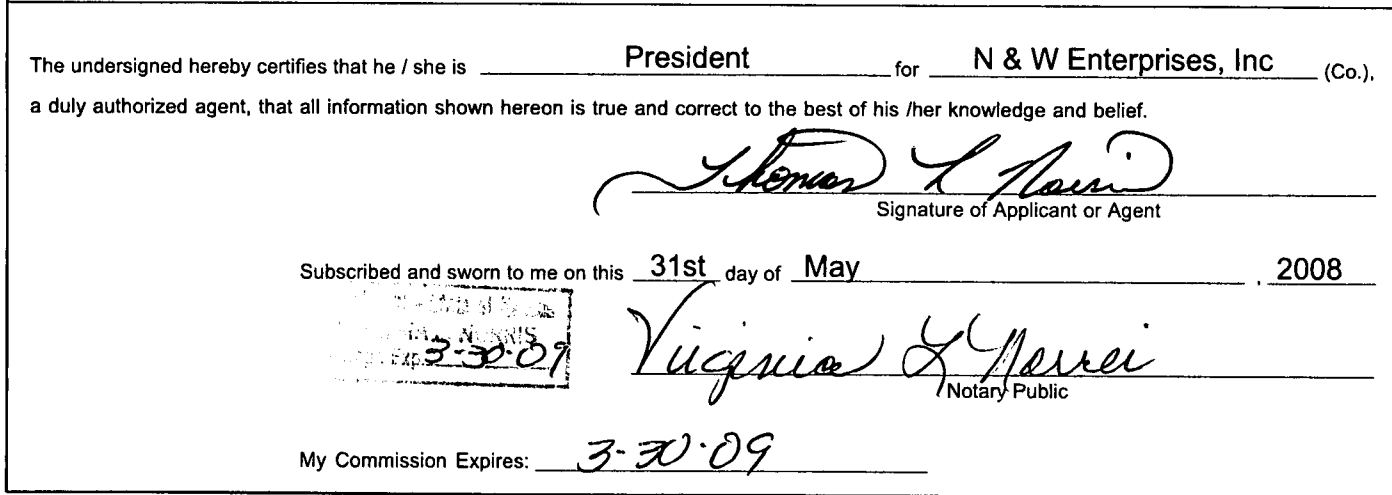 The undersigned hereby certifies that he / she is President for N & W Enterprises, Inc (Co.),
a duly authorized agent, that all information shown hereon is true and correct to the best of his /her knowledge and belief.
Thomas L Norris
Signature of Applicant or Agent
Subscribed and sworn to me on this 31st day of May , 2008
NORRIS
Exp. 3-30-09
Virginia L Norris
Notary Public
My Commission Expires: 3-30-09